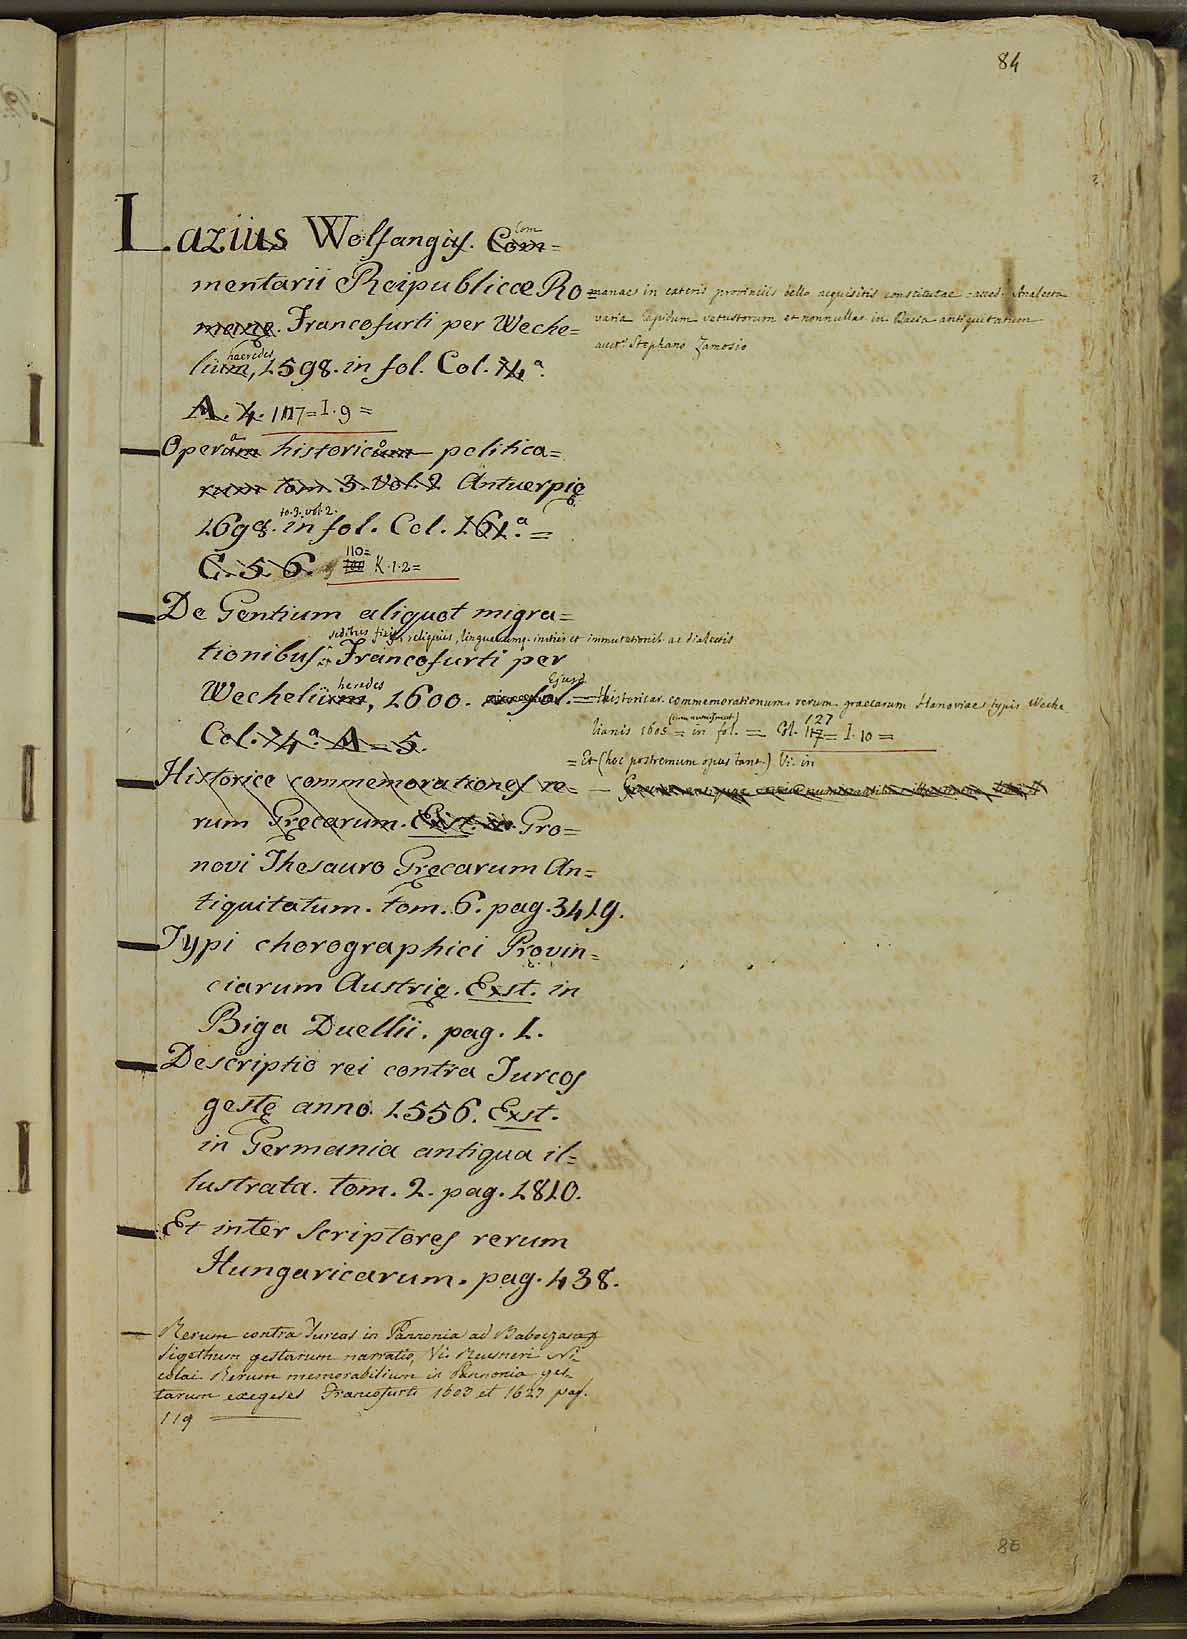 84
Lazius Wolfangius. Com=
Com
mentarii Reipublicæ Ro=
manae in cateris provinciis bello acquisitis constitutae = acced. Analecta
varia lapidum vetustorum et nonnullae in Dacia antiquitatum
auct.e Stephano Zamosio
manę. Francofurti per Weche=
haeredes
lium, 1598. in fol. Col. 74ª.
A. 4. 117= I. 9 =
Operum historicum politica=
rum tom. 3. vol. 2 Antuerpię
to. 3. vol. 2.
1698. in fol. Col. 161.ª =
C. 5. 6. 110= K. 1. 2 =
De Gentium aliquot migra=
sedibus fixis, reliquiis, linguarumq. initiis et immutationib. ac dialectis
tionibus. Francofurti per
heredes
Wechelium, 1600. fol. =
Ejusd. Historicar. commemorationum rerum graecarum Hanoviae typis Weche
lianis 1605 = in fol. = Col. 127 = I. 10 =
= Et (hoc postremum opus tant.) Vi. in
Col. 74ª. A = 5.
Historicę commemorationes re=
rum Gręcarum. Exst. in Gro=
novi Thesauro Gręcarum An=
tiquitatum. tom. 6. pag. 3419.
Typi chorographici Provin=
ciarum Austrię. Exst. in
Biga Duellii. pag. 1.
Descriptio rei contra Turcos
gestę anno. 1556. Exst.
in Germania antiqua il=
lustrata. tom. 2. pag. 1810.
Et inter Scriptores rerum
Hungaricarum. pag. 438.
Rerum contra Turcas in Pannonia ad Baboczam &
Sigethum gestarum narratio, Vi. Reusneri Ni=
colai Rerum memorabilium in Pannonia ges=
tarum exegeses Francofurti 1603 et 1627 pag.
119
86